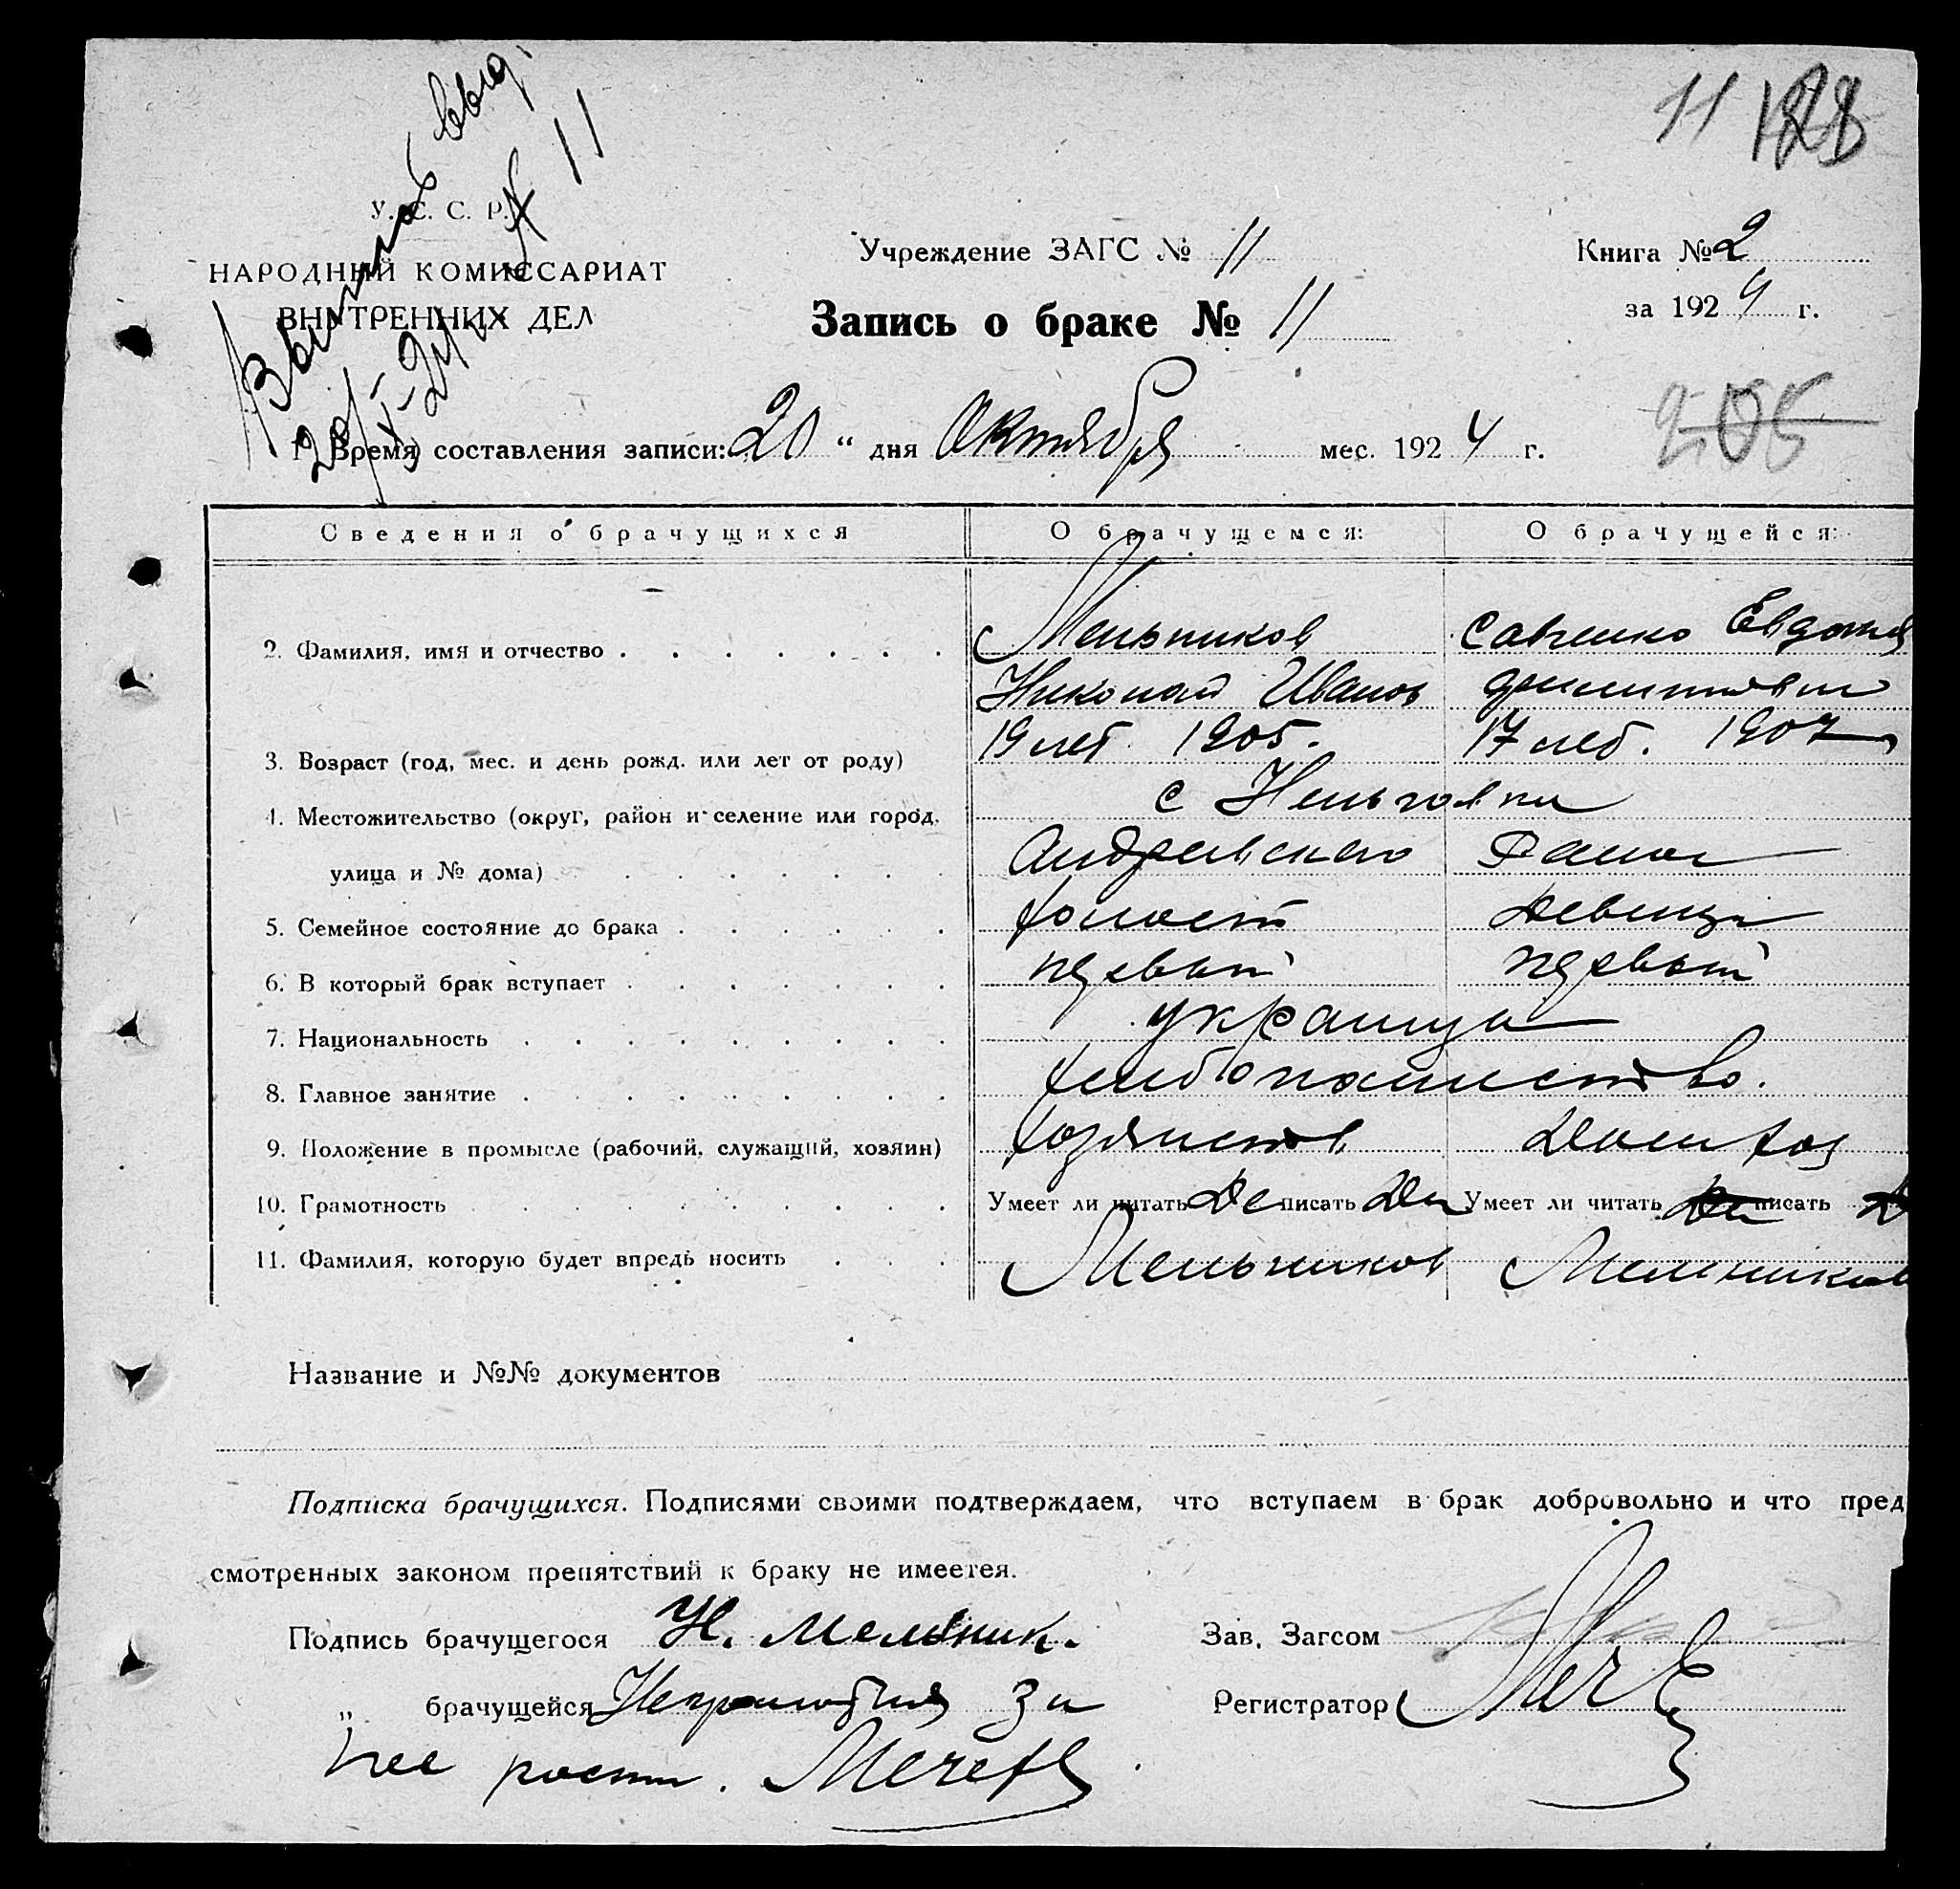 11 128
Выпись выд.
20/X-24 № 11
У. С. С. Р.
НАРОДНЫЙ КОМИССАРИАТ
ВНУТРЕННИХ ДЕЛ
Учреждение ЗАГС № 11
Книга № 2
за 1924 г.
Запись о браке № 11
205
1. Время составления записи: 20 “ дня Октября мес. 1924 г.
Сведения о брачущихся О брачущемся: О брачущейся:
2. Фамилия, имя и отчество Мельников Савченко Евдокия
Николай Иванов
3. Возраст (год, мес. и день рожд. или лет от роду) 19 лет 1905. 17 лет. 1907
4. Местожительство (округ, район и селение или город, с
улица и № дома) Андреевского Района
5. Семейное состояние до брака холост девица
6. В который брак вступает первый первый
7. Национальность украинцы
8. Главное занятие хлебопашество.
9. Положение в промысле (рабочий, служащий, хозяин) Дом хоз
10. Грамотность Умеет ли читать Да писать Да Умеет ли читать Да писать
11. Фамилия, которую будет впредь носить Мельников Мельников
Название и №№ документов
Подписка брачущихся. Подписями своими подтверждаем, что вступаем в брак добровольно и что пред
смотренных законом препятствий к браку не имеется.
Подпись брачущегося Н. Мельник. Зав. Загсом
„ брачущейся Неграмотная за Регистратор
нее росп.